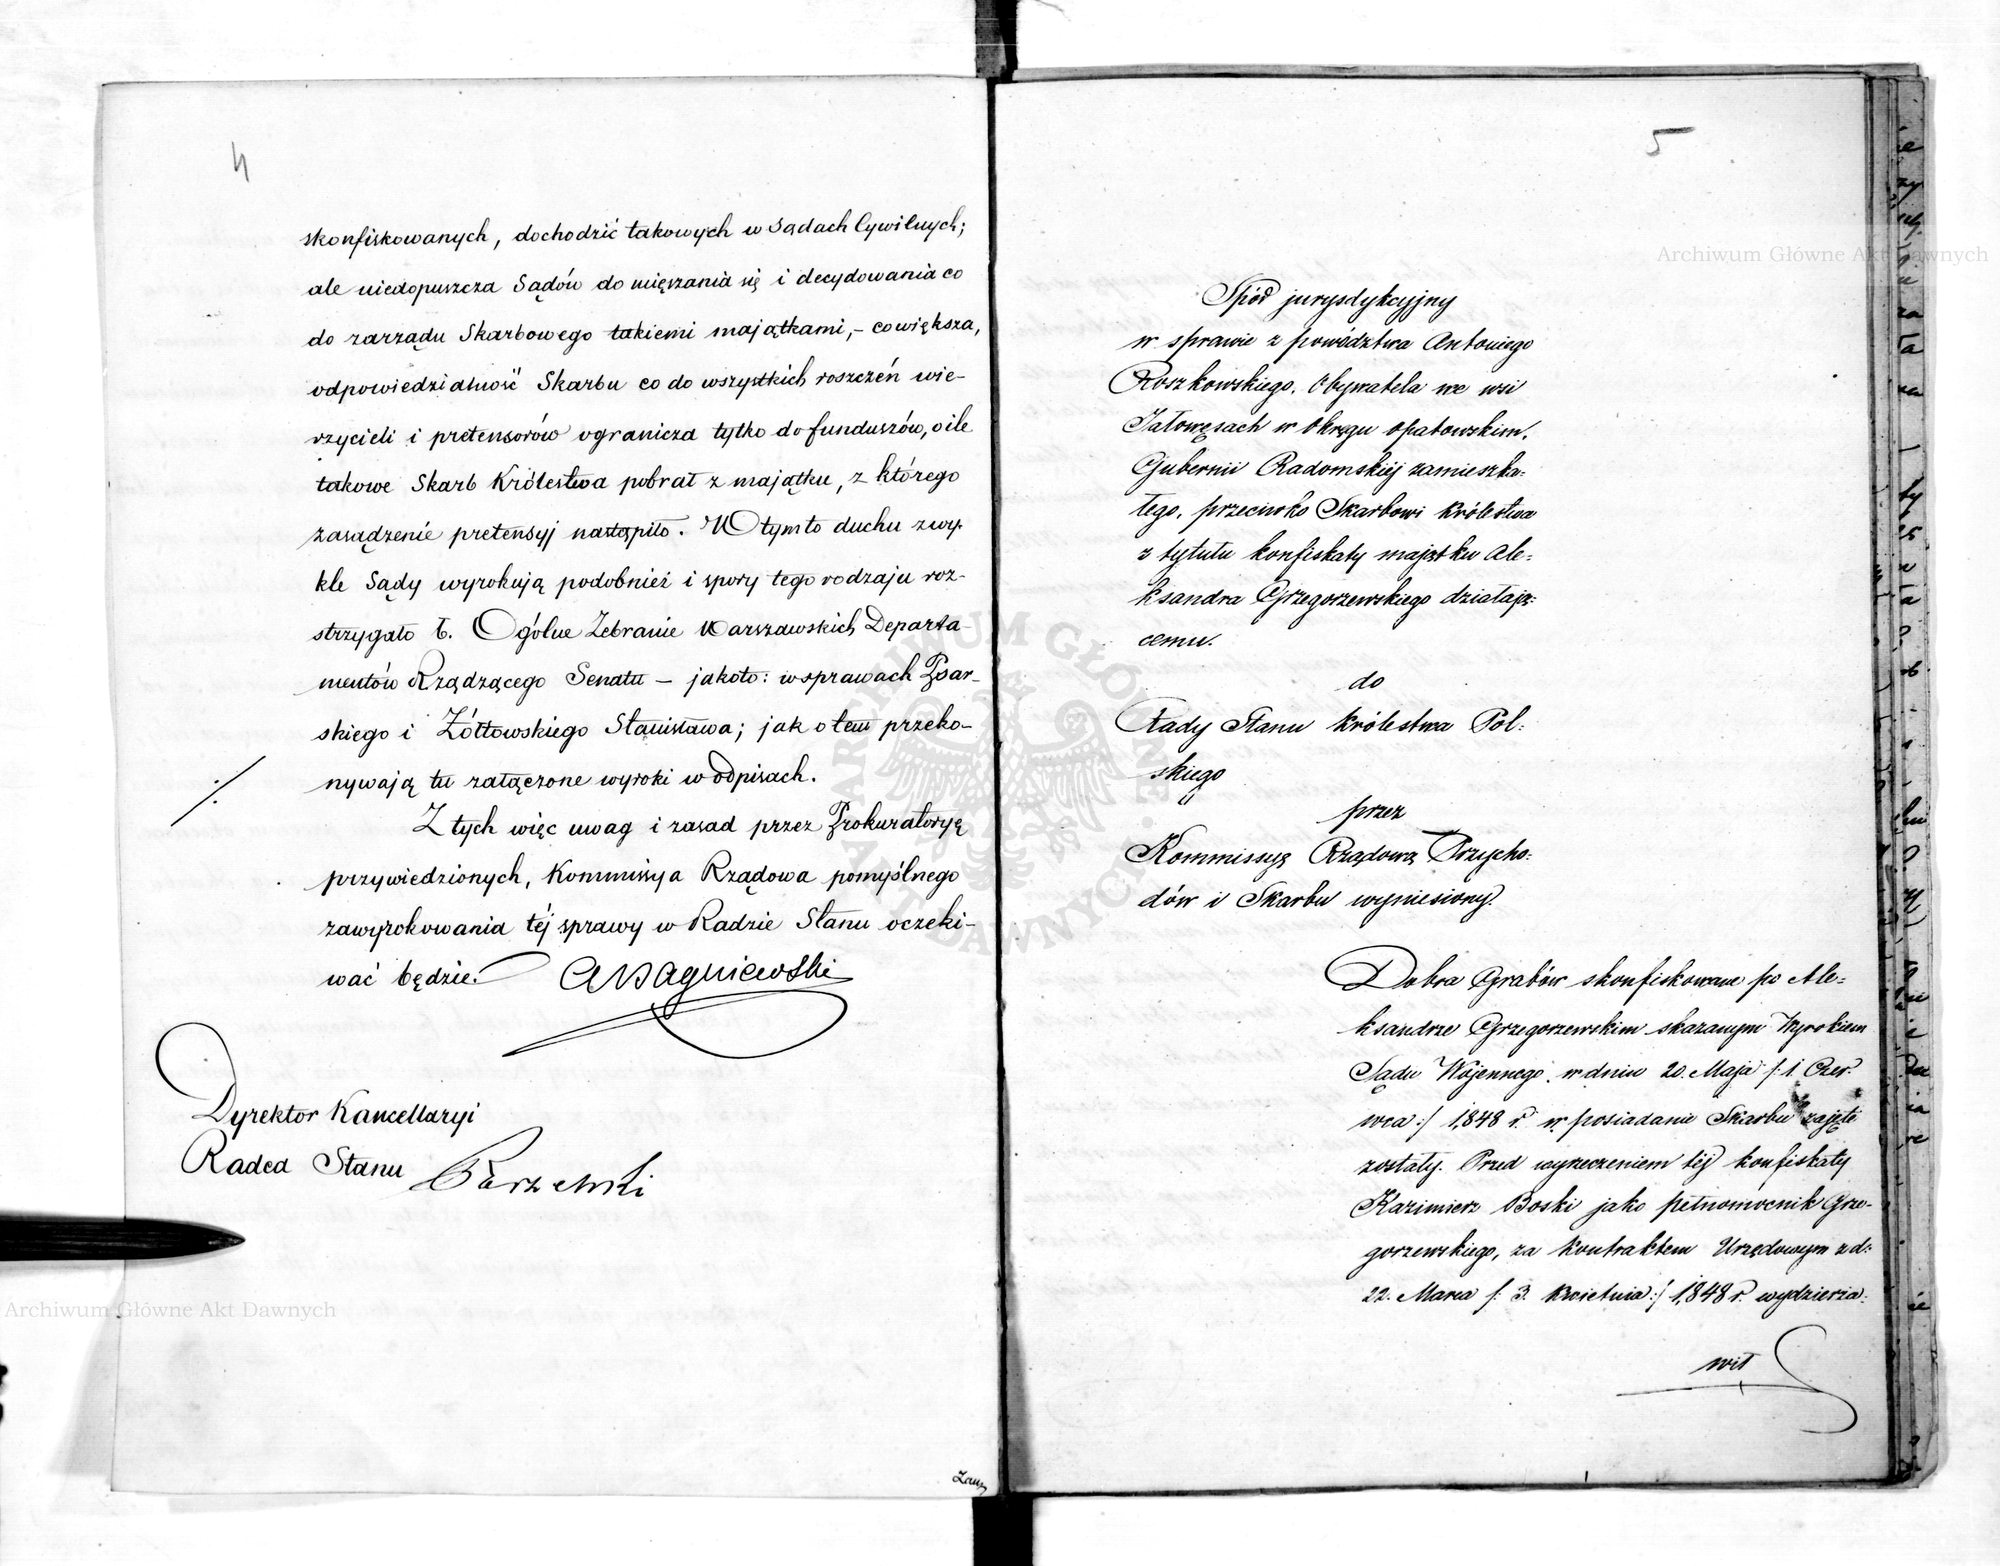 4
skonfiskowanych, dochodzić takowych w Sądach Cywilnych;
ale niedopuszcza Sądów do mięszania się i decydowania co
do zarządu Skarbowego takiemi majątkami,- co większa,
odpowiedzialność Skarbu co do wszystkich roszczeń wie-
rzycieli i pretensorów ogranicza tylko do funduszów, o ile
takowe Skarb Królestwa pobrał z majątku, z którego
zasądzenie pretensyj nastąpiło. W tymto duchu zwy-
kle Sądy wyrokują podobnież i spory tego rodzaju roz-
strzygało b. Ogólne Zebranie Warszawskich Departa-
mentów Rządzącego Senatu – jakoto: w sprawach Psar-
skiego i Żółtowskiego Stanisława; jak o tem przeko-
nywają tu załączone wyroki w odpisach.
Z tych więc uwag i zasad przez Prokuratoryę
przywiedzionych, Kommissya Rządowa pomyślnego
zawyrokowania téj sprawy w Radzie Stanu oczeki-
wać będzie.
Dyrektor Kancellaryi
Radca Stanu
5
Spór jurysdykcyjny
w sprawie z powództwa Antoniego
Roszkowskiego, Obywatela we wsi
Jałowęsach w Okręgu Opatowskim,
Gubernii Radomskiéj zamieszka=
łego, przeciwko Skarbowi Królestwa
z tytułu konfiskaty majątku Ale=
ksandra Grzegorzewskiego działają=
cemu.
do
Rady Stanu Królestwa Pol=
skiego
przez
Kommissyą Rządową Przycho=
dów i Skarbu wyniesiony.
Dobra Grabów skonfiskowane po Ale=
ksandrze Grzegorzewskim skazanym Wyrokiem
Sądu Wojennego w dniu 20. Maja /: 1 Czer=
wca :/ 1848 r. w posiadanie Skarbu zajęte
zostały. Przed wyrzeczeniem téj konfiskaty
Kazimierz Boski jako pełnomocnik Grze-
gorzewskiego, za Kontraktem Urzędowym z d:
22. Marca /: 3. Kwietnia :/ 1848 r. wydzierża=
wił
Archiwum Główne Akt Dawnych
Archiwum Główne Akt Dawnych
ARCHIWUM GŁÓWNE AKT DAWNYCH